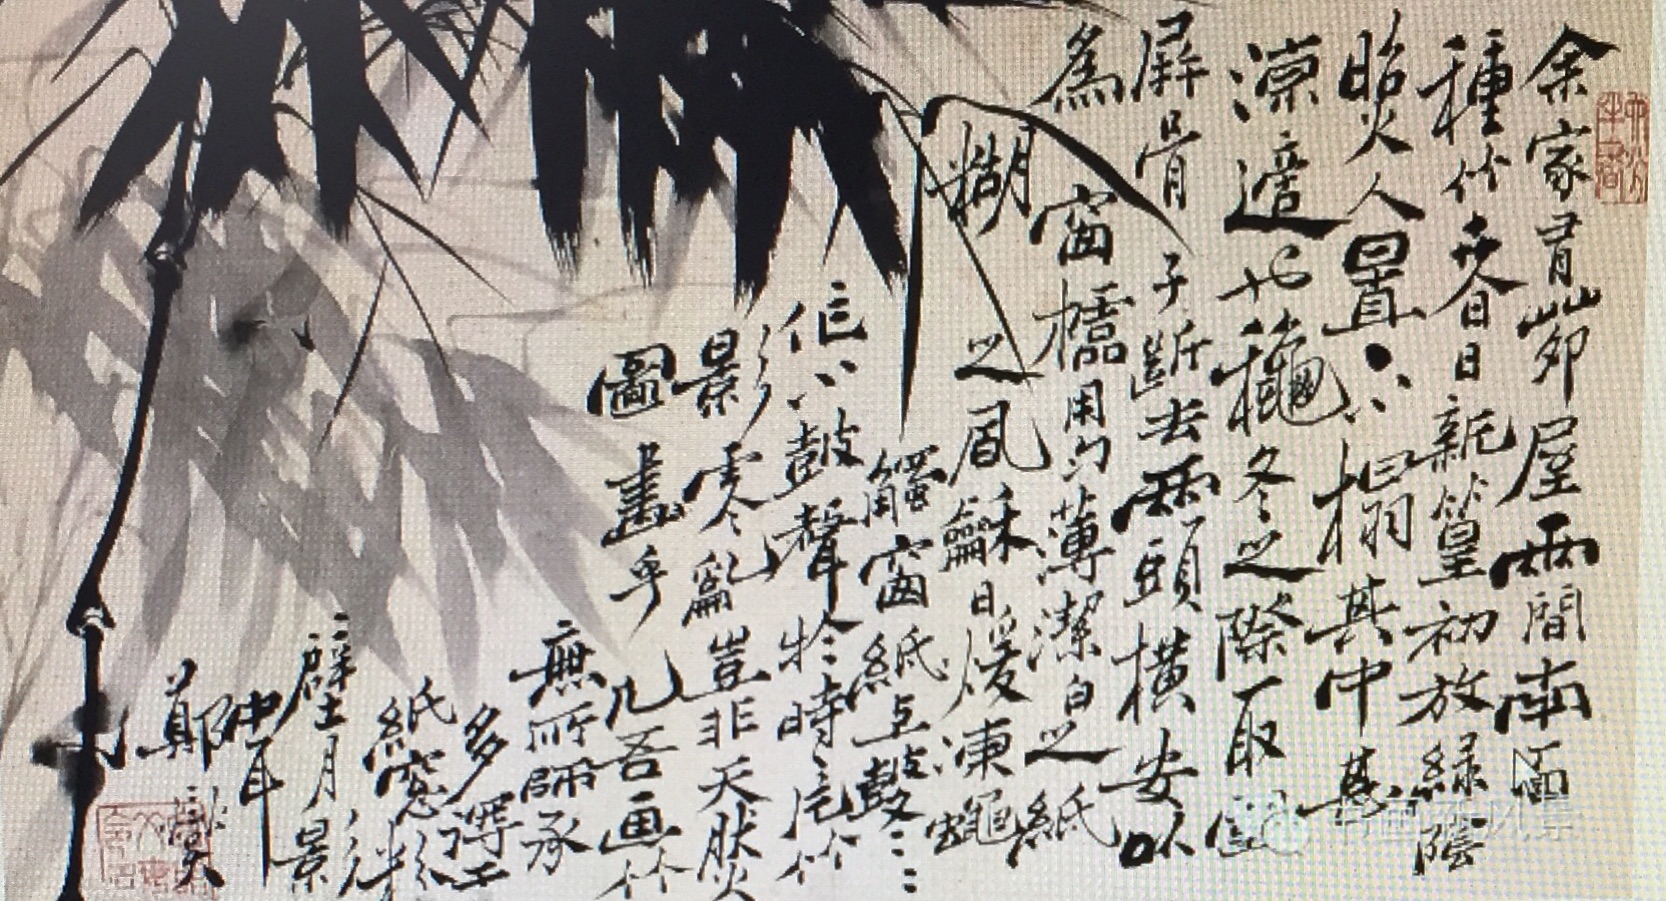 余家有茆屋兩間南面
種竹夏日新篁初放綠陰
照人置一榻其中甚
涼適也秋冬之際取圍
屏骨子斷去兩頭橫安以
為窗櫺用勻薄潔白之紙
糊之風和日暖凍蠅
觸窗紙上鼕鼕
作小鼓聲於時一片竹
影零亂豈非天然
圖畫乎凡吾画竹
無所師承
多得于
紙窗粉
壁日光月影
中耳
鄭燮